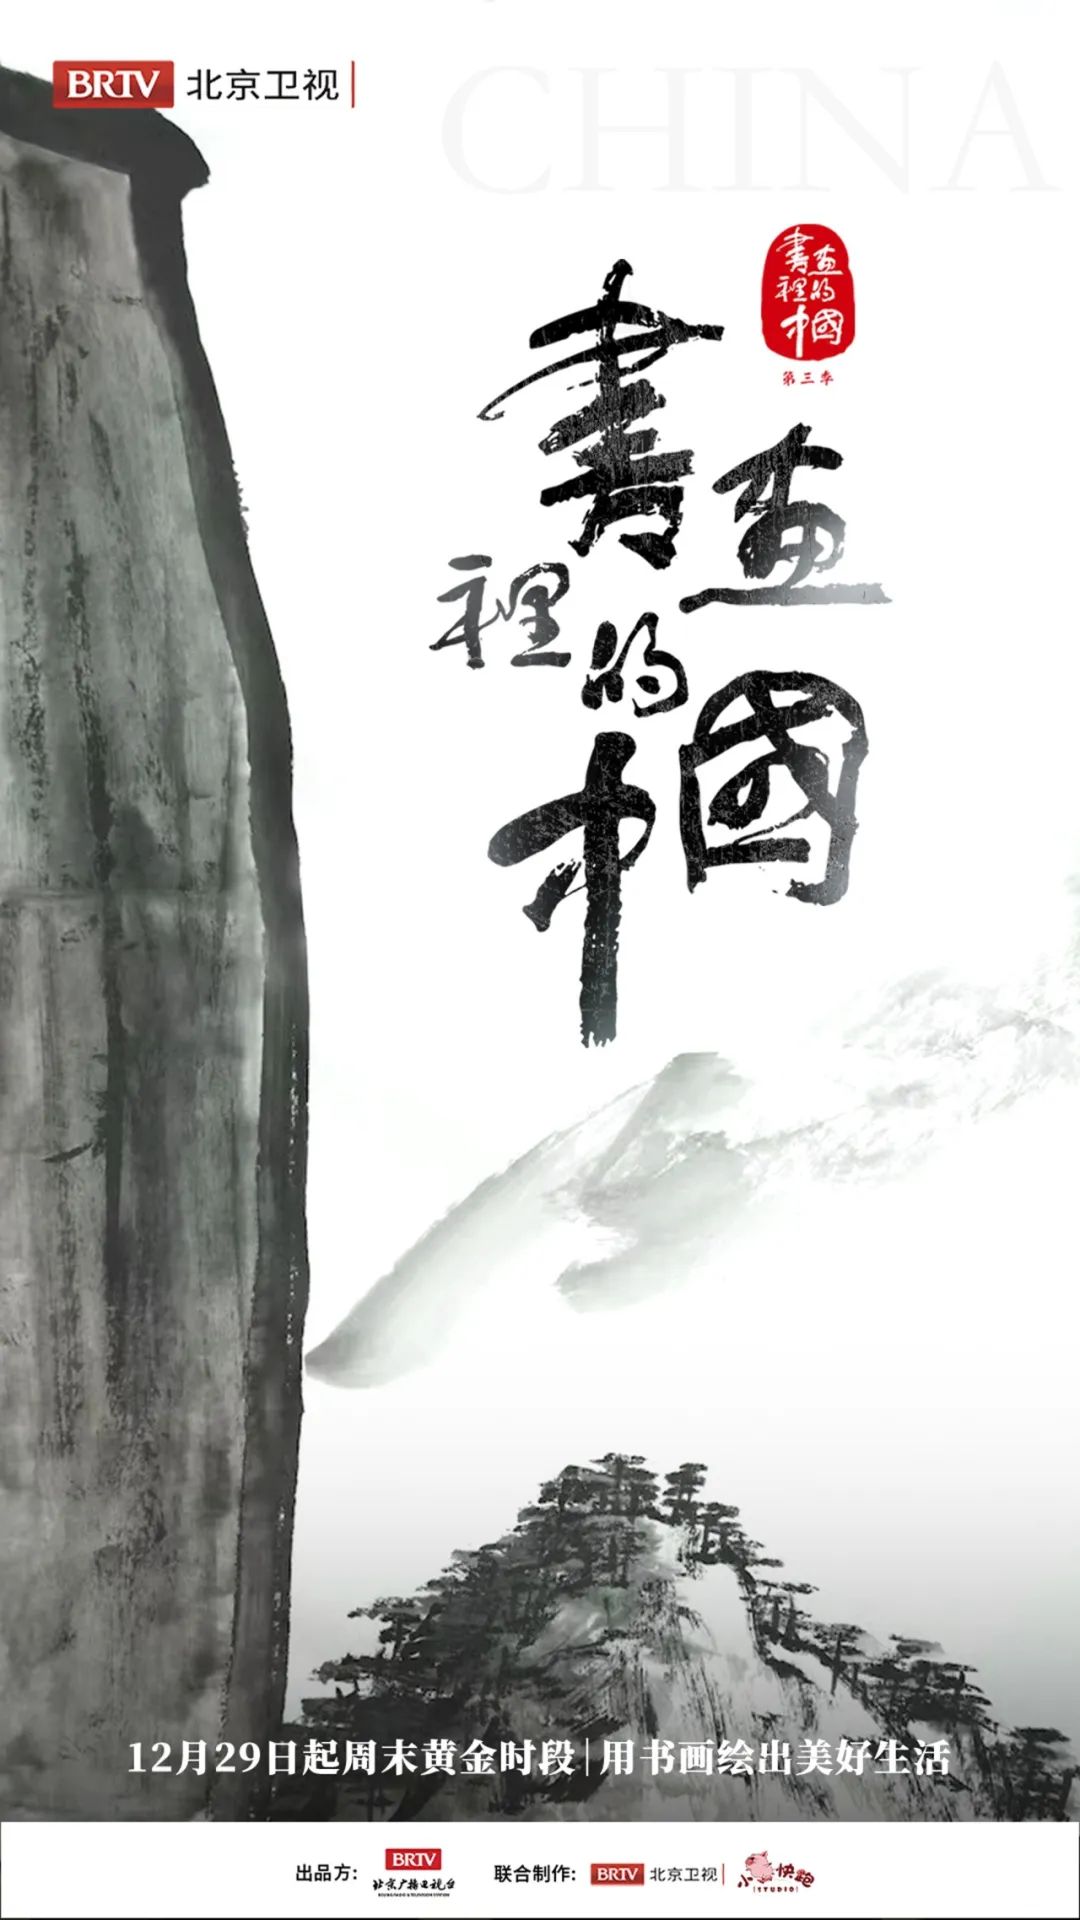 BRTV 北京卫视
CHINA
書画
裡的
中國
第三季
書画
裡的
中國
12月29日起周末黄金时段|用书画绘出美好生活
出品方: BRTV 北京广播电视台
联合制作: BRTV 北京卫视 小快跑 STUDIO